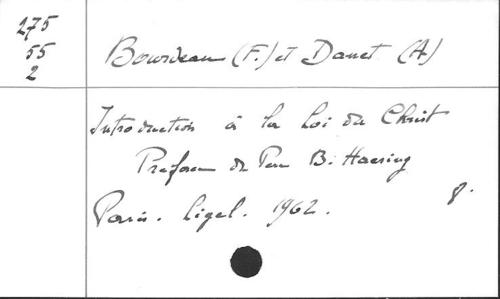 275
55
2
Bourdeau (F.) et Danet (A)
Introduction à la Loi du Christ
Preface du Pere B. Haering
Paris. Ligel. 1962. 8.